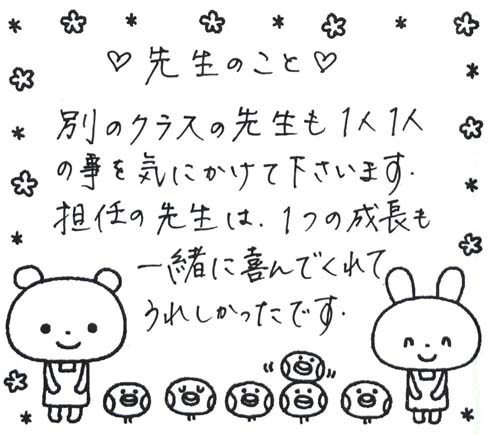 ♡先生のこと♡
別のクラスの先生も1人1人
の事を気にかけて下さいます.
担任の先生は、1つの成長も
一緒に喜んでくれて
うれしかったです.